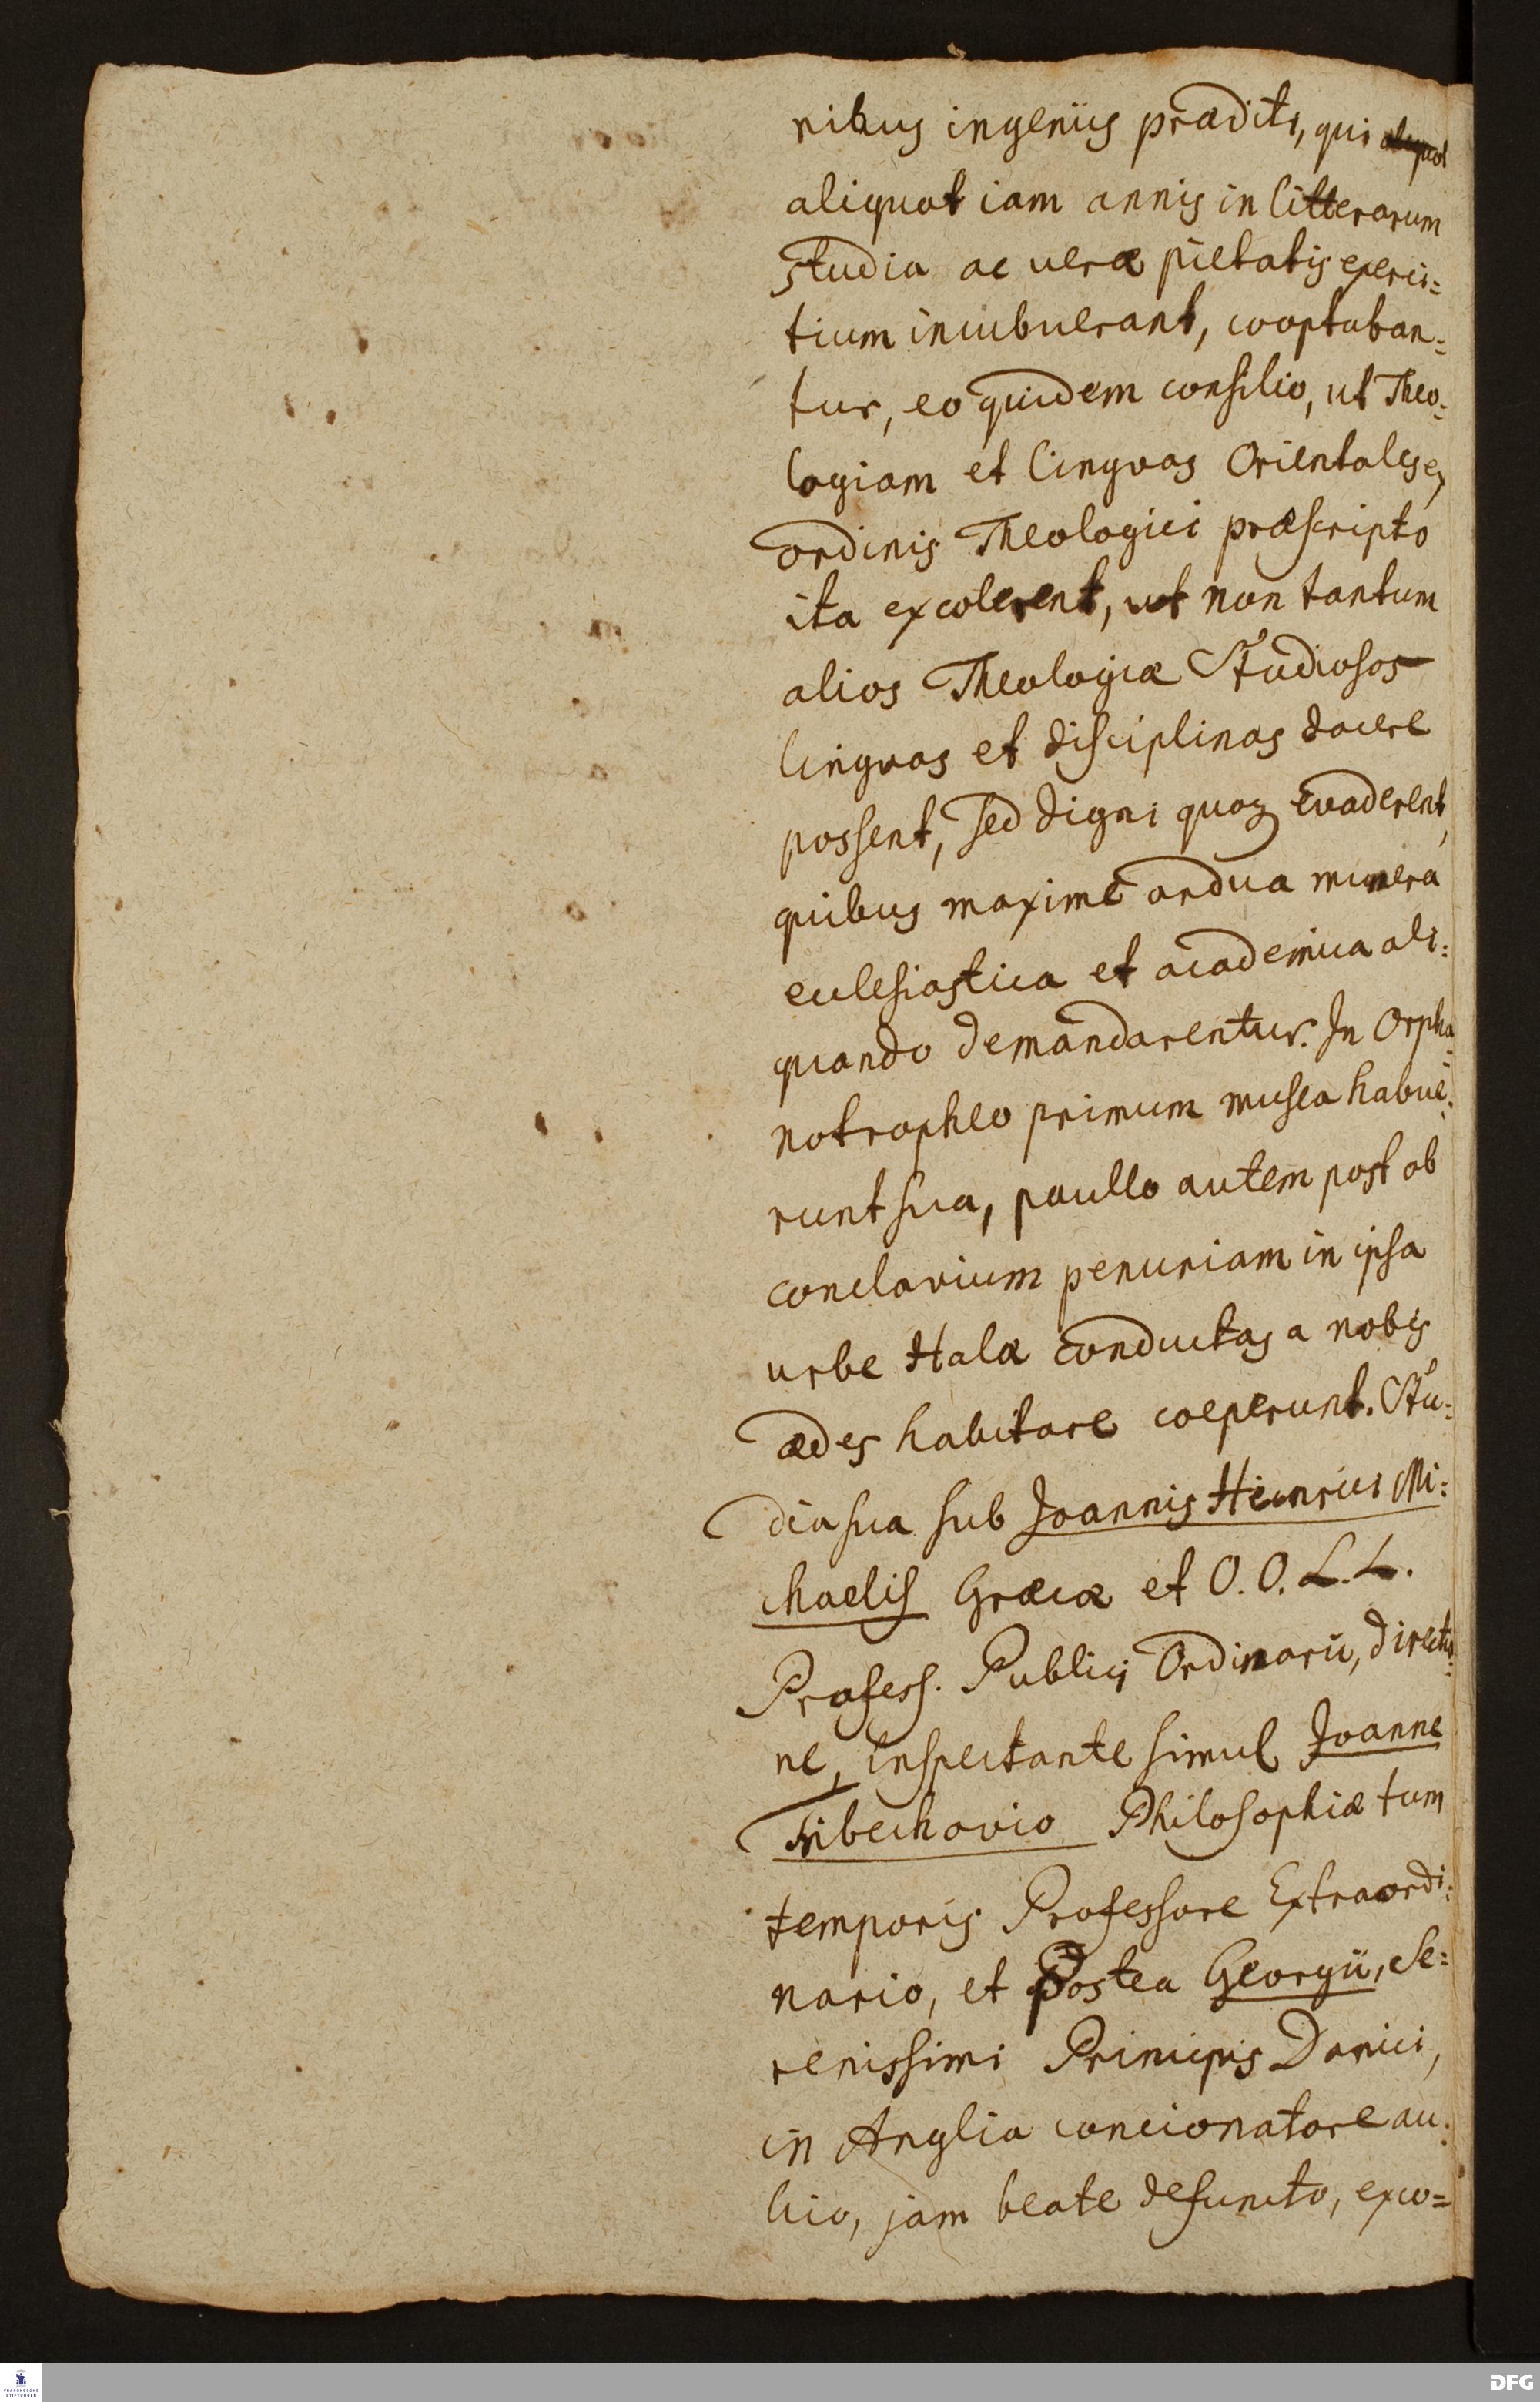 nibus ingeniis præditi, qui aliquot
aliquot iam annis in litterarum
studia ac veræ pietatis exerci=
tium incubuerant, cooptaban=
tur, eo quidem consilio, ut Theo=
logiam et lingvas Orientales ex
ordinis Theologici præscripto
ita excolerent, ut non tantum
alios Theologiæ Studiosos
lingvas et disciplinas docere
possent, sed digni quoq evaderent,
quibus maxime ardua munera
ecclesiastica et academica ali=
quando demandarentur. In Orpha=
notropheo primum musea habue=
runt sua, paullo autem post ob
conclavium penuriam in ipsa
urbe Hala conductas a nobis
ædes habitare coeperunt. Stu=
dia sua sub Joannis Heinrici Mi=
chaelis Græcæ et O. O. L. L.
Profess. Publici Ordinarii, directio=
ne, inspectante simul Joanne
Tribechovio Philosophiæ tum
temporis Professore Extraordi=
nario, et postea Georgii, Se=
renissimi Principis Danici,
in Anglia concionatore au=
lico, jam beate defuncto, exco=
FRANCKESCHE
STIFTUNGEN
DFG